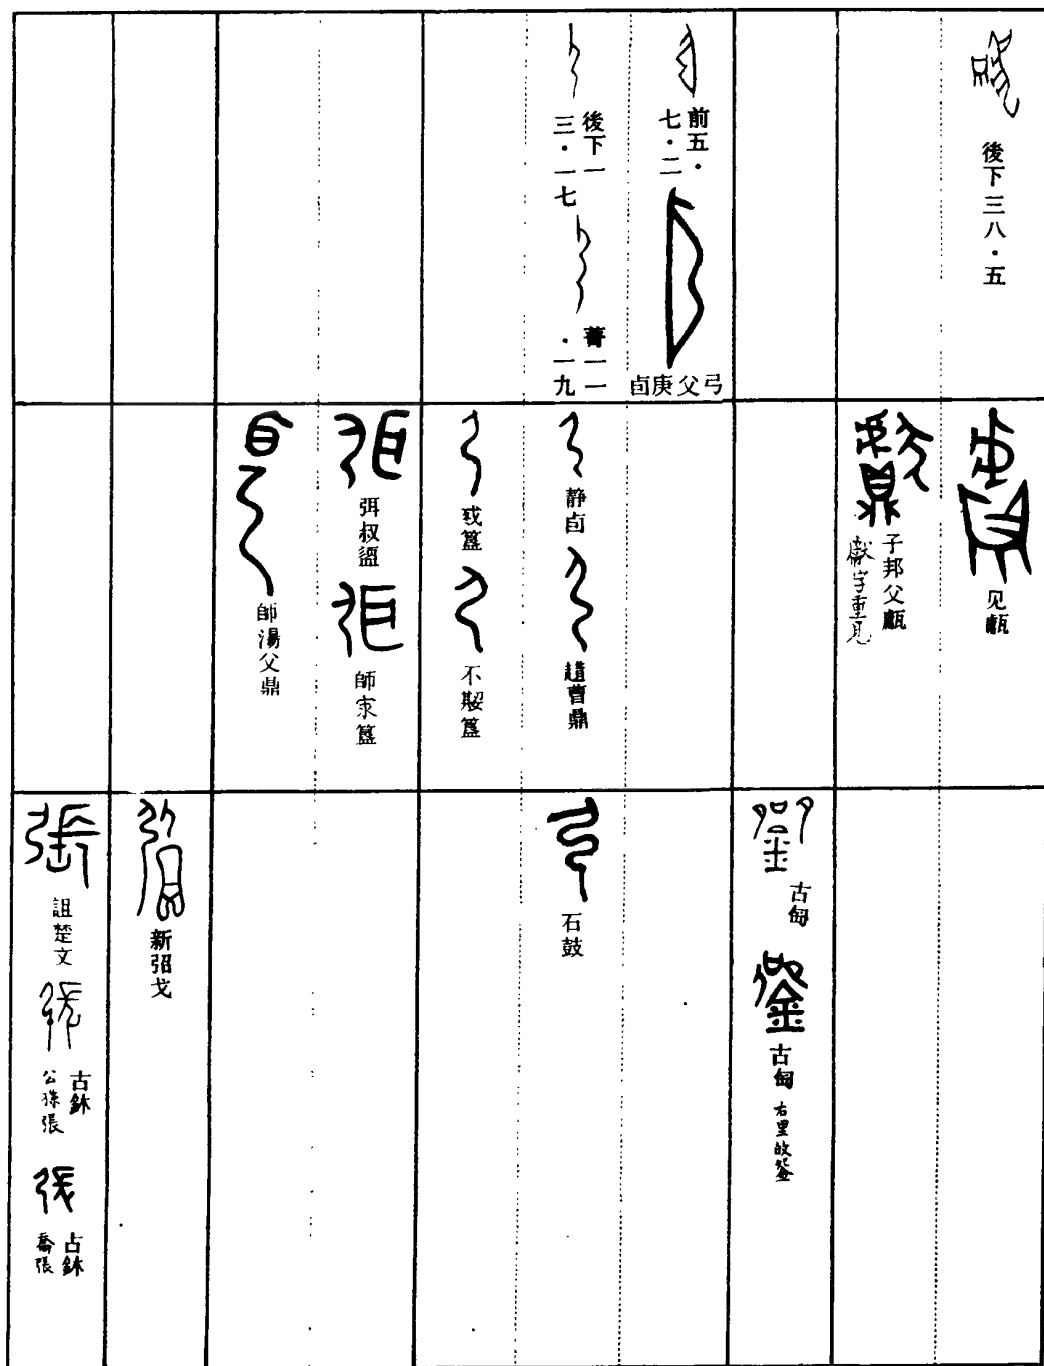 後下三八·五
前五·
七·二
弓父庚卣
後下一
三·一七
菁一一
·一九
见甗
子邦父甗
獻字重見
静卣
趞曹鼎
或簋
不𡢁簋
弭叔盨
師㝨簋
師湯父鼎
古匋
古匋
右里啟䥐
石鼓
新弨戈
詛楚文
古鉨
公孫張
古鉨
喬張